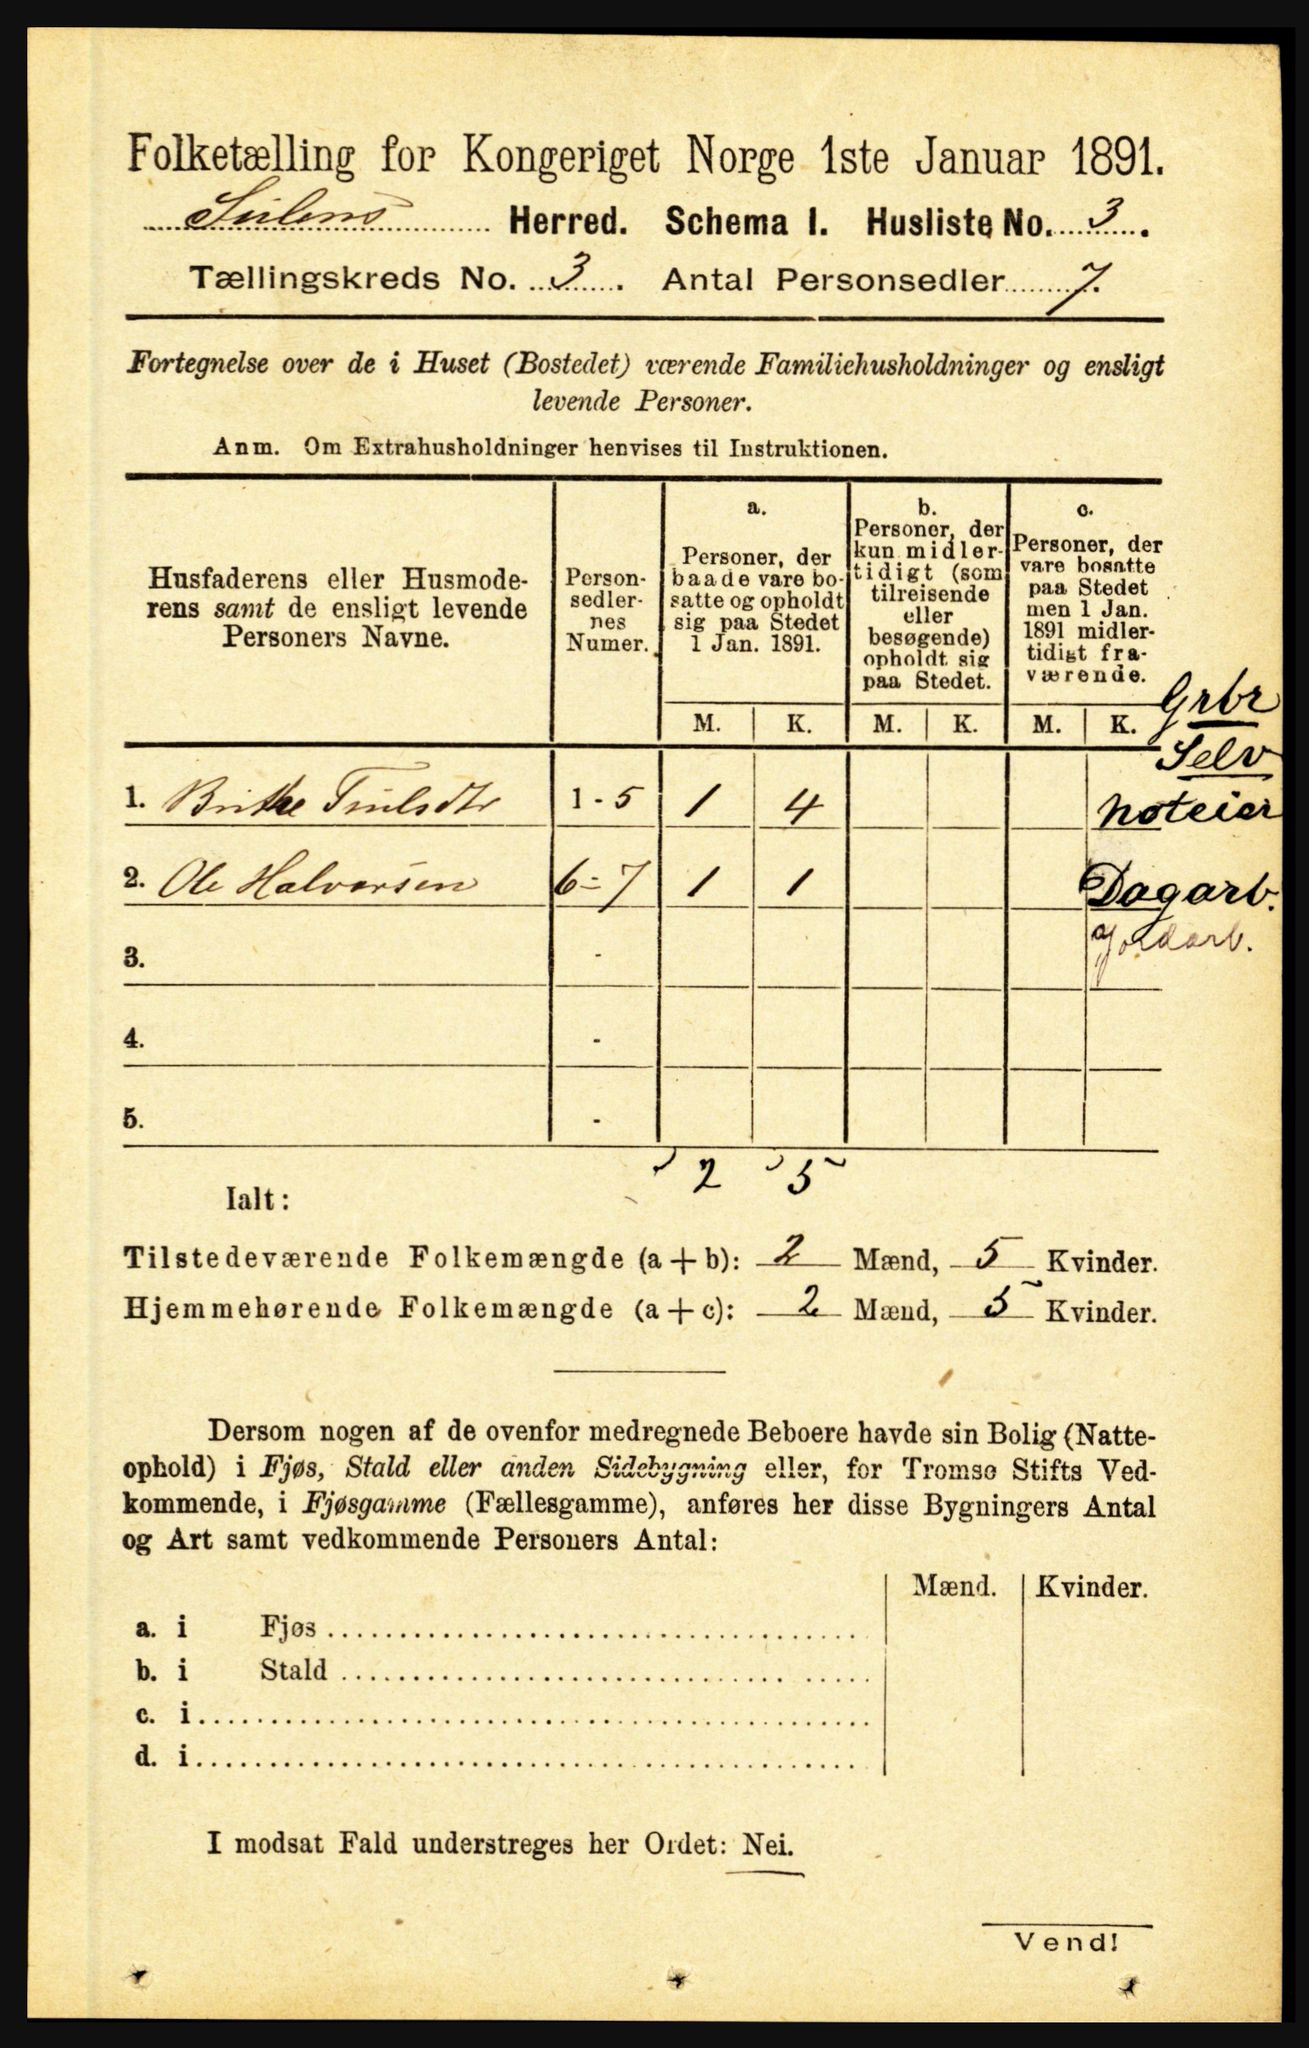 Folketælling for Kongeriget Norge 1ste Januar 1891.
Herred. Schema I. Husliste No. 3.
Tællingskreds No. 3. Antal Personsedler 7.
Fortegnelse over de i Huset (Bostedet) værende Familiehusholdninger og ensligt
levende Personer.
Anm. Om Extrahusholdninger henvises til Instruktionen.
Husfaderens eller Husmode-
rens samt de ensligt levende
Personers Navne.
Person-
sedler-
nes
Numer.
a.
Personer, der
baade vare bo-
satte og opholdt
sig paa Stedet
1 Jan. 1891.
b.
Personer, der
kun midler-
tidigt (som
tilreisende
eller
besøgende)
opholdt sig
paa Stedet.
c.
Personer, der
vare bosatte
paa Stedet
men 1 Jan.
1891 midler-
tidigt fra-
værende.
M. K. M. K. M. K.
Grbr
Selv
1. 1 - 5 1 4 noteier
2. Ole Halvorsen 6 - 7 1 1 Dagarb.
Jordarb.
3. -
4. -
5. -
2 5
Ialt:
Tilstedeværende Folkemængde (a + b): 2 Mænd, 5 Kvinder.
Hjemmehørende Folkemængde (a + c): 2 Mænd, 5 Kvinder.
Dersom nogen af de ovenfor medregnede Beboere havde sin Bolig (Natte-
ophold) i Fjøs, Stald eller anden Sidebygning eller, for Tromsø Stifts Ved-
kommende, i Fjøsgamme (Fællesgamme), anføres her disse Bygningers Antal
og Art samt vedkommende Personers Antal:
Mænd. Kvinder.
a. i Fjøs
b. i Stald
c. i
d. i
I modsat Fald understreges her Ordet: Nei.
Vend!